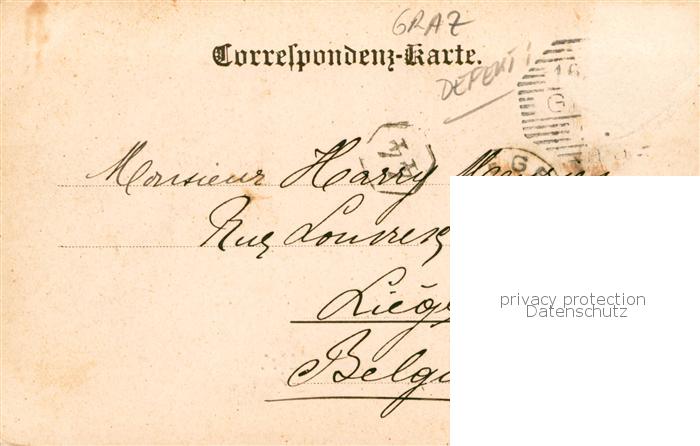 GRAZ
Correspondenz-Karte.
DEFEKT!
16
G
GR
Monsieur Harry
Rue
Liége
Belgi
privacy protection
Datenschutz